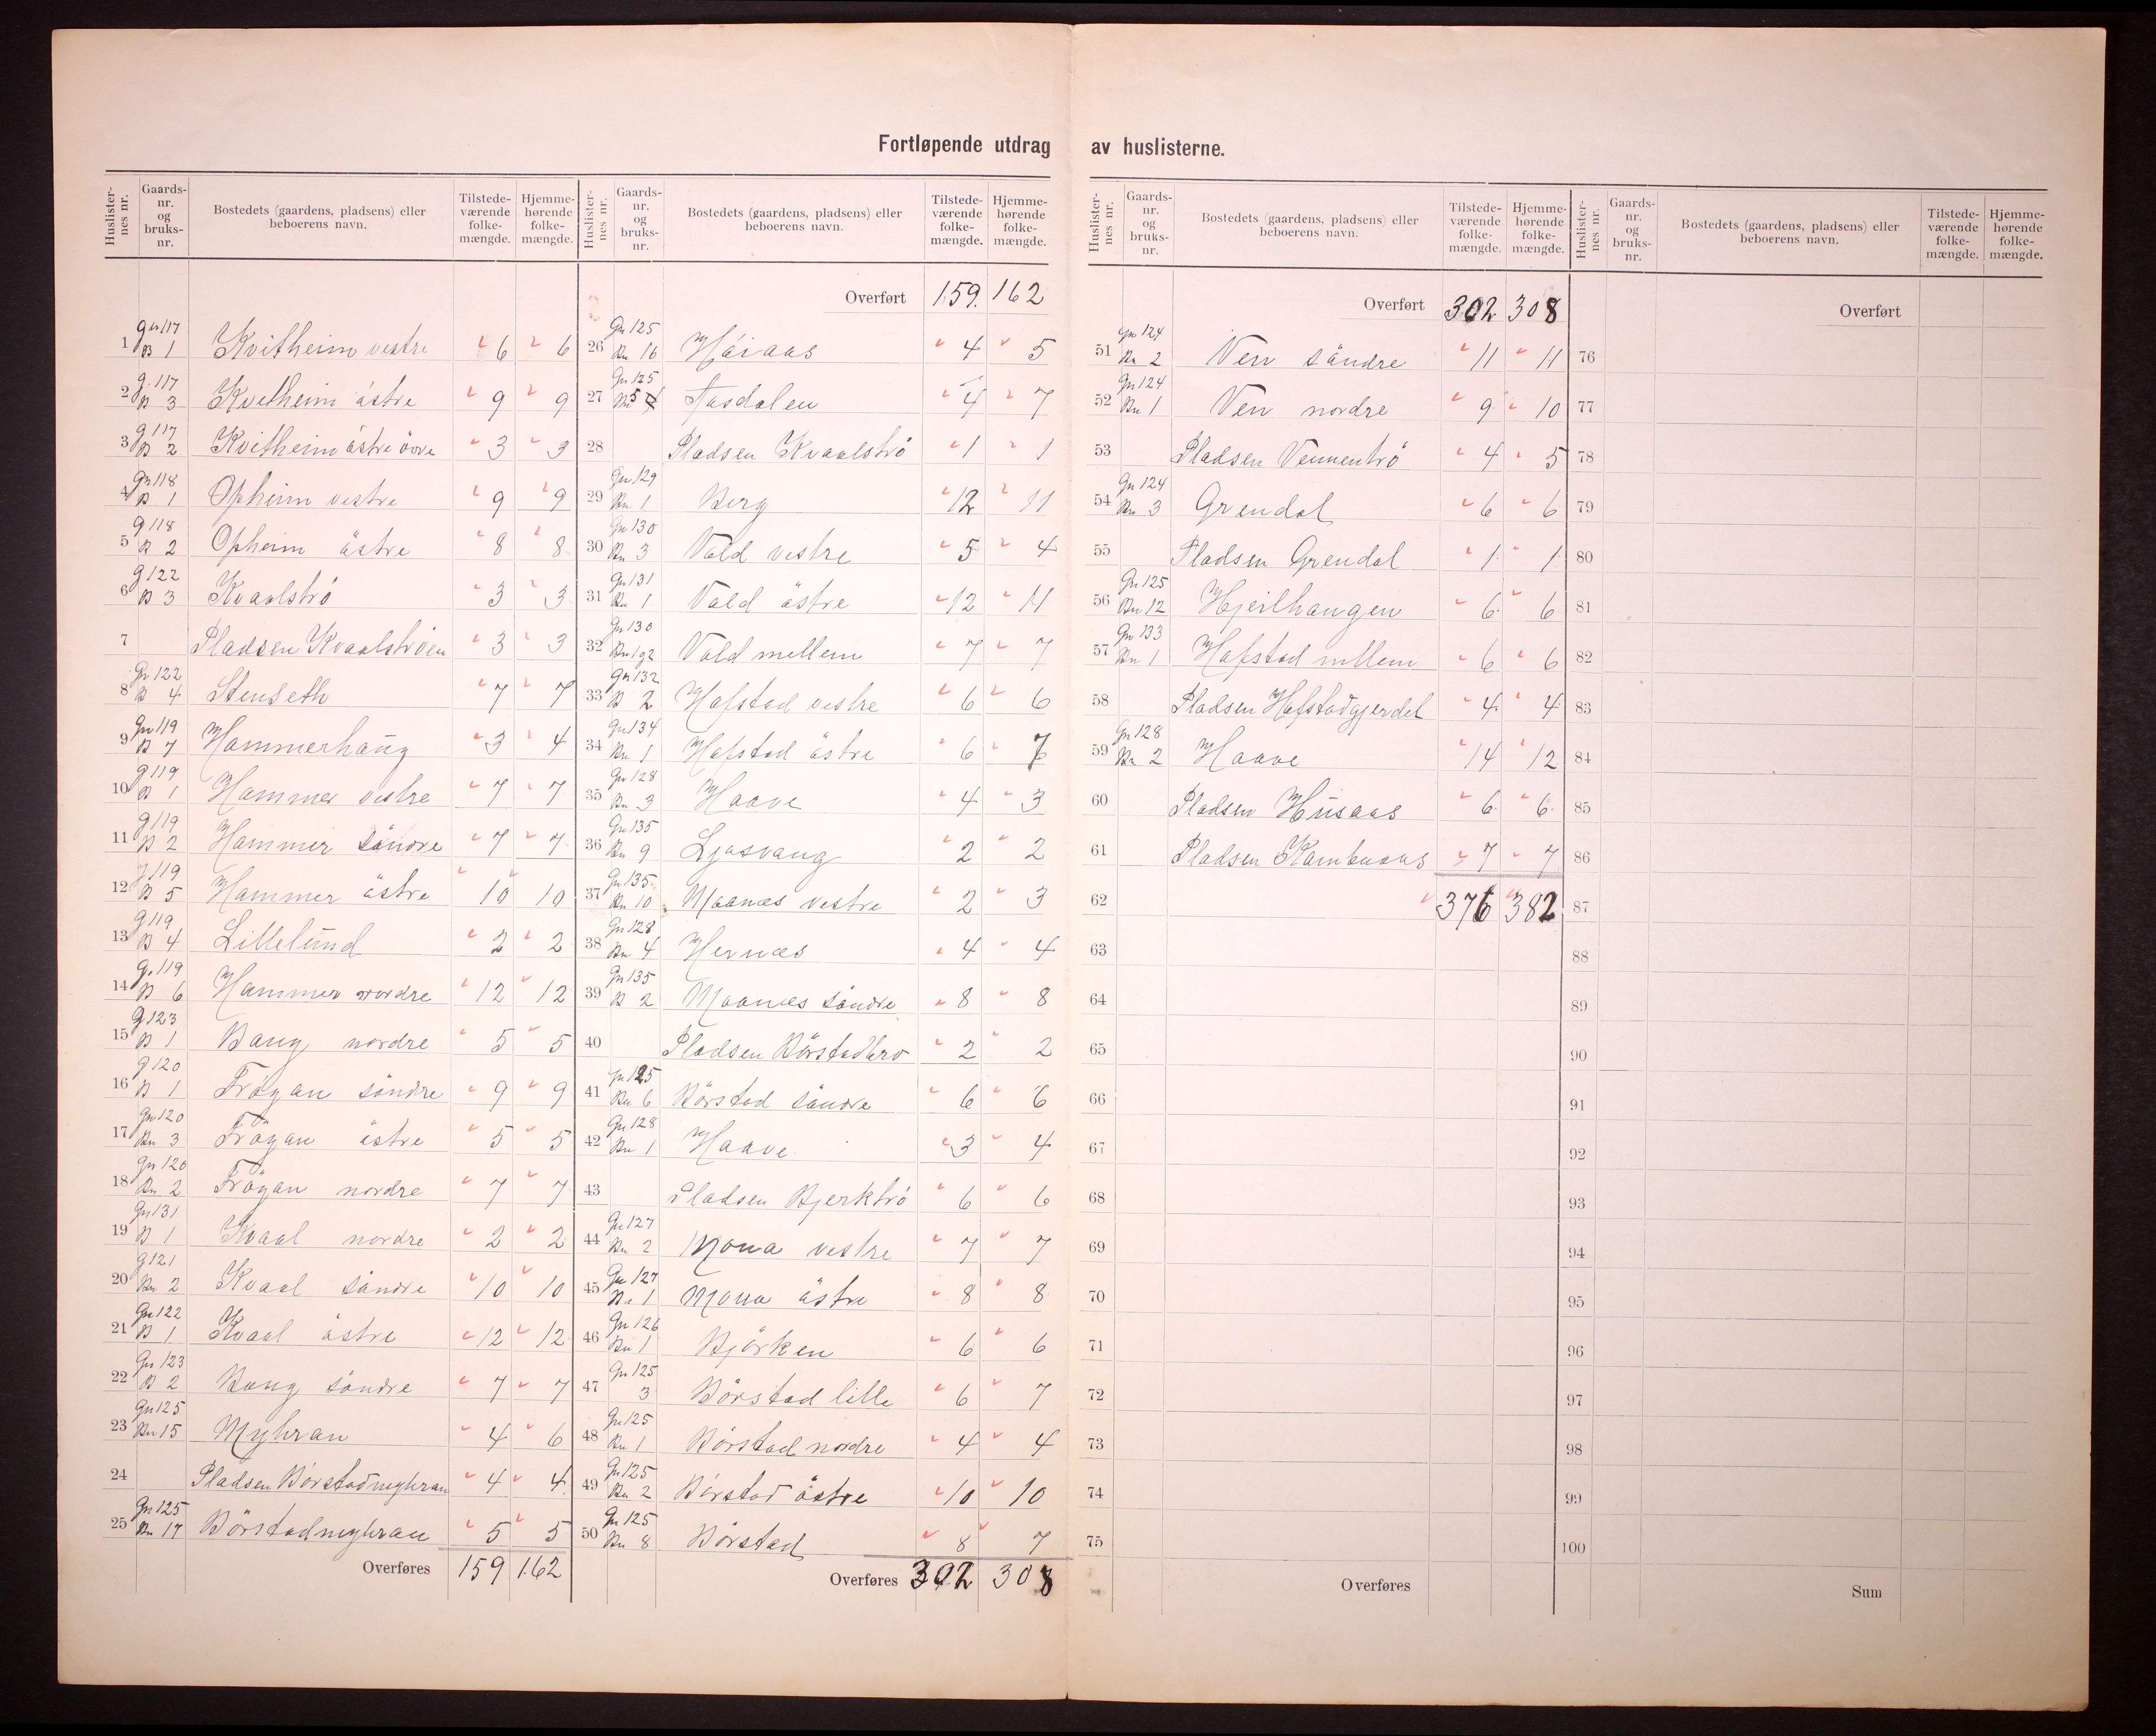 Fortløpende utdrag av huslisterne.
Huslister-nes nr. Gaards-nr. og bruks-nr. Bostedets (gaardens, pladsens) eller beboerens navn. Tilstede-værende folke-mængde. Hjemme-hørende folke-mængde.
1 gn 117 B 1 Kvitheim vestre 6 6
2 g. 117 B 3 Kvitheim östre 9 9
3 g 117 B 2 Kvitheim östre övre 3 3
4 gn 118 B 1 Opheim vestre 9 9
5 g 118 B 2 Opheim östre 8 8
6 g 122 B 3 Kvaalströ 3 3
7 Pladsen Kvaalströen 3 3
8 Gn 122 B 4 Stenseth 7 7
9 Gn 119 B 7 Hammerhaug 3 4
10 g 119 B 1 Hammer vestre 7 7
11 g 119 B 2 Hammer söndre 7 7
12 g 119 B 5 Hammer östre 10 10
13 g 119 B 4 Lillelund 2 2
14 g. 119 B 6 Hammer nordre 12 12
15 g 123 B 1 Bang nordre 5 5
16 g 120 B 1 Fröyan söndre 9 9
17 Gn 120 Bn 3 Fröyan östre 5 5
18 Gn 120 Bn 2 Fröyan nordre 7 7
19 Gn 131 B 1 Kvaal nordre 2 2
20 g 121 Bn 2 Kvaal söndre 10 10
21 Gn 122 B 1 Kvaal östre 12 12
22 Gn 123 B 2 Bang söndre 7 7
23 Gn 125 Bn 15 Myhran 4 6
24 Pladsen Börstadmyhran 4 4
25 Gn 125 Bn 17 Börstadmyhran 5 5
Overføres 159 162
Huslister-nes nr. Gaards-nr. og bruks-nr. Bostedets (gaardens, pladsens) eller beboerens navn. Tilstede-værende folke-mængde. Hjemme-hørende folke-mængde.
Overført 159. 162
26 Gn 125 Bn 16 Höiaas 4 5
27 Gn 125 Bn 5 Fosdalen 4 7
28 Pladsen Kvaalströ 1 1
29 Gn 129 Bn 1 Berg 12 11
30 Gn 130 Bn 3 Vold vestre 5 4
31 Gn 131 Bn 1 Vold östre 12 11
32 Gn 130 Bn 1 g 2 Vold mellem 7 7
33 Gn 132 B 2 Hofstad vestre 6 6
34 Gn 134 Bn 1 Hofstad östre 6 7
35 Gn 128 Bn 3 Haave 4 3
36 Gn 135 Bn 9 Ljosvang 2 2
37 Gn 135 Bn 10 Moanæs vestre 2 3
38 Gn 128 Bn 4 Hernæs 4 4
39 Gn 135 B 2 Moanæs söndre 8 8
40 Pladsen Börstadbro 2 2
41 Gn 125 Bn 6 Börstad söndre 6 6
42 Gn 128 Bn 1 Haave 3 4
43 Pladsen Bjerktrö 6 6
44 Gn 127 Bn 2 Mona vestre 7 7
45 Gn 127 Bn 1 Mona östre 8 8
46 Gn 126 Bn 1 Björken 6 6
47 Gn 125 3 Börstad lille 6 7
48 Gn 125 Bn 1 Börstad nordre 4 4
49 Gn 125 Bn 2 Börstad östre 10 10
50 Gn 125 Bn 8 Börstad 8 7
Overføres 302 308
Huslister-nes nr. Gaards-nr. og bruks-nr. Bostedets (gaardens, pladsens) eller beboerens navn. Tilstede-værende folke-mængde. Hjemme-hørende folke-mængde.
Overført 302 308
51 Gn 124 Bn 2 Ven söndre 11 11
52 Gn 124 Bn 1 Ven nordre 9 10
53 Pladsen Vennentrö 4 5
54 Gn 124 Bn 3 Grendal 6 6
55 Pladsen Grendal 1 1
56 Gn 125 Bn 12 Hjeilhaugen 6 6
57 Gn 133 Bn 1 Hofstad mellem 6 6
58 Pladsen Hofstadgjerdet 4 4
59 Gn 128 Bn 2 Haave 14 12
60 Pladsen Husaas 6 6
61 Pladsen Kambuaas 7 7
62 376 382
63
64
65
66
67
68
69
70
71
72
73
74
75
Overføres
Huslister-nes nr. Gaards-nr. og bruks-nr. Bostedets (gaardens, pladsens) eller beboerens navn. Tilstede-værende folke-mængde. Hjemme-hørende folke-mængde.
Overført
76
77
78
79
80
81
82
83
84
85
86
87
88
89
90
91
92
93
94
95
96
97
98
99
100
Sum